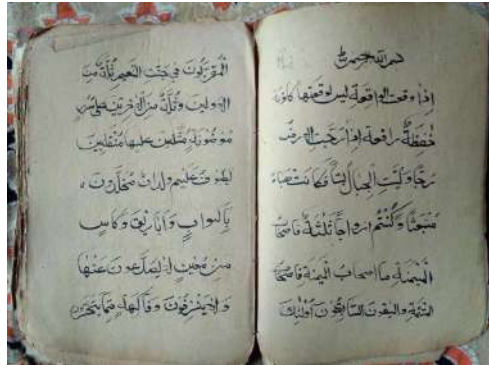 بسم الله الرحمن الرحيم
اذا وقعت الواقعة ليس لوقعتها كاذبة
خافضة رافعة اذا رجت الارض
رجا وبست الجبال بسا فكانت هباء
منبثا وكنتم ازواجا ثلثة فاصحاب
الميمنة ما اصحاب الميمنة واصحاب
المشئمة والسبقون السابقون اولئك
المقربون في جنت النعيم ثلة من
الاولين وقليل من الاخرين على سرر
موضونة متكئين عليها متقبلين
يطوف عليهم ولدان مخلدون
باكواب واباريق وكاس
من معين لا يصدعون عنها
ولا ينزفون وفاكهة مما يتخيرون